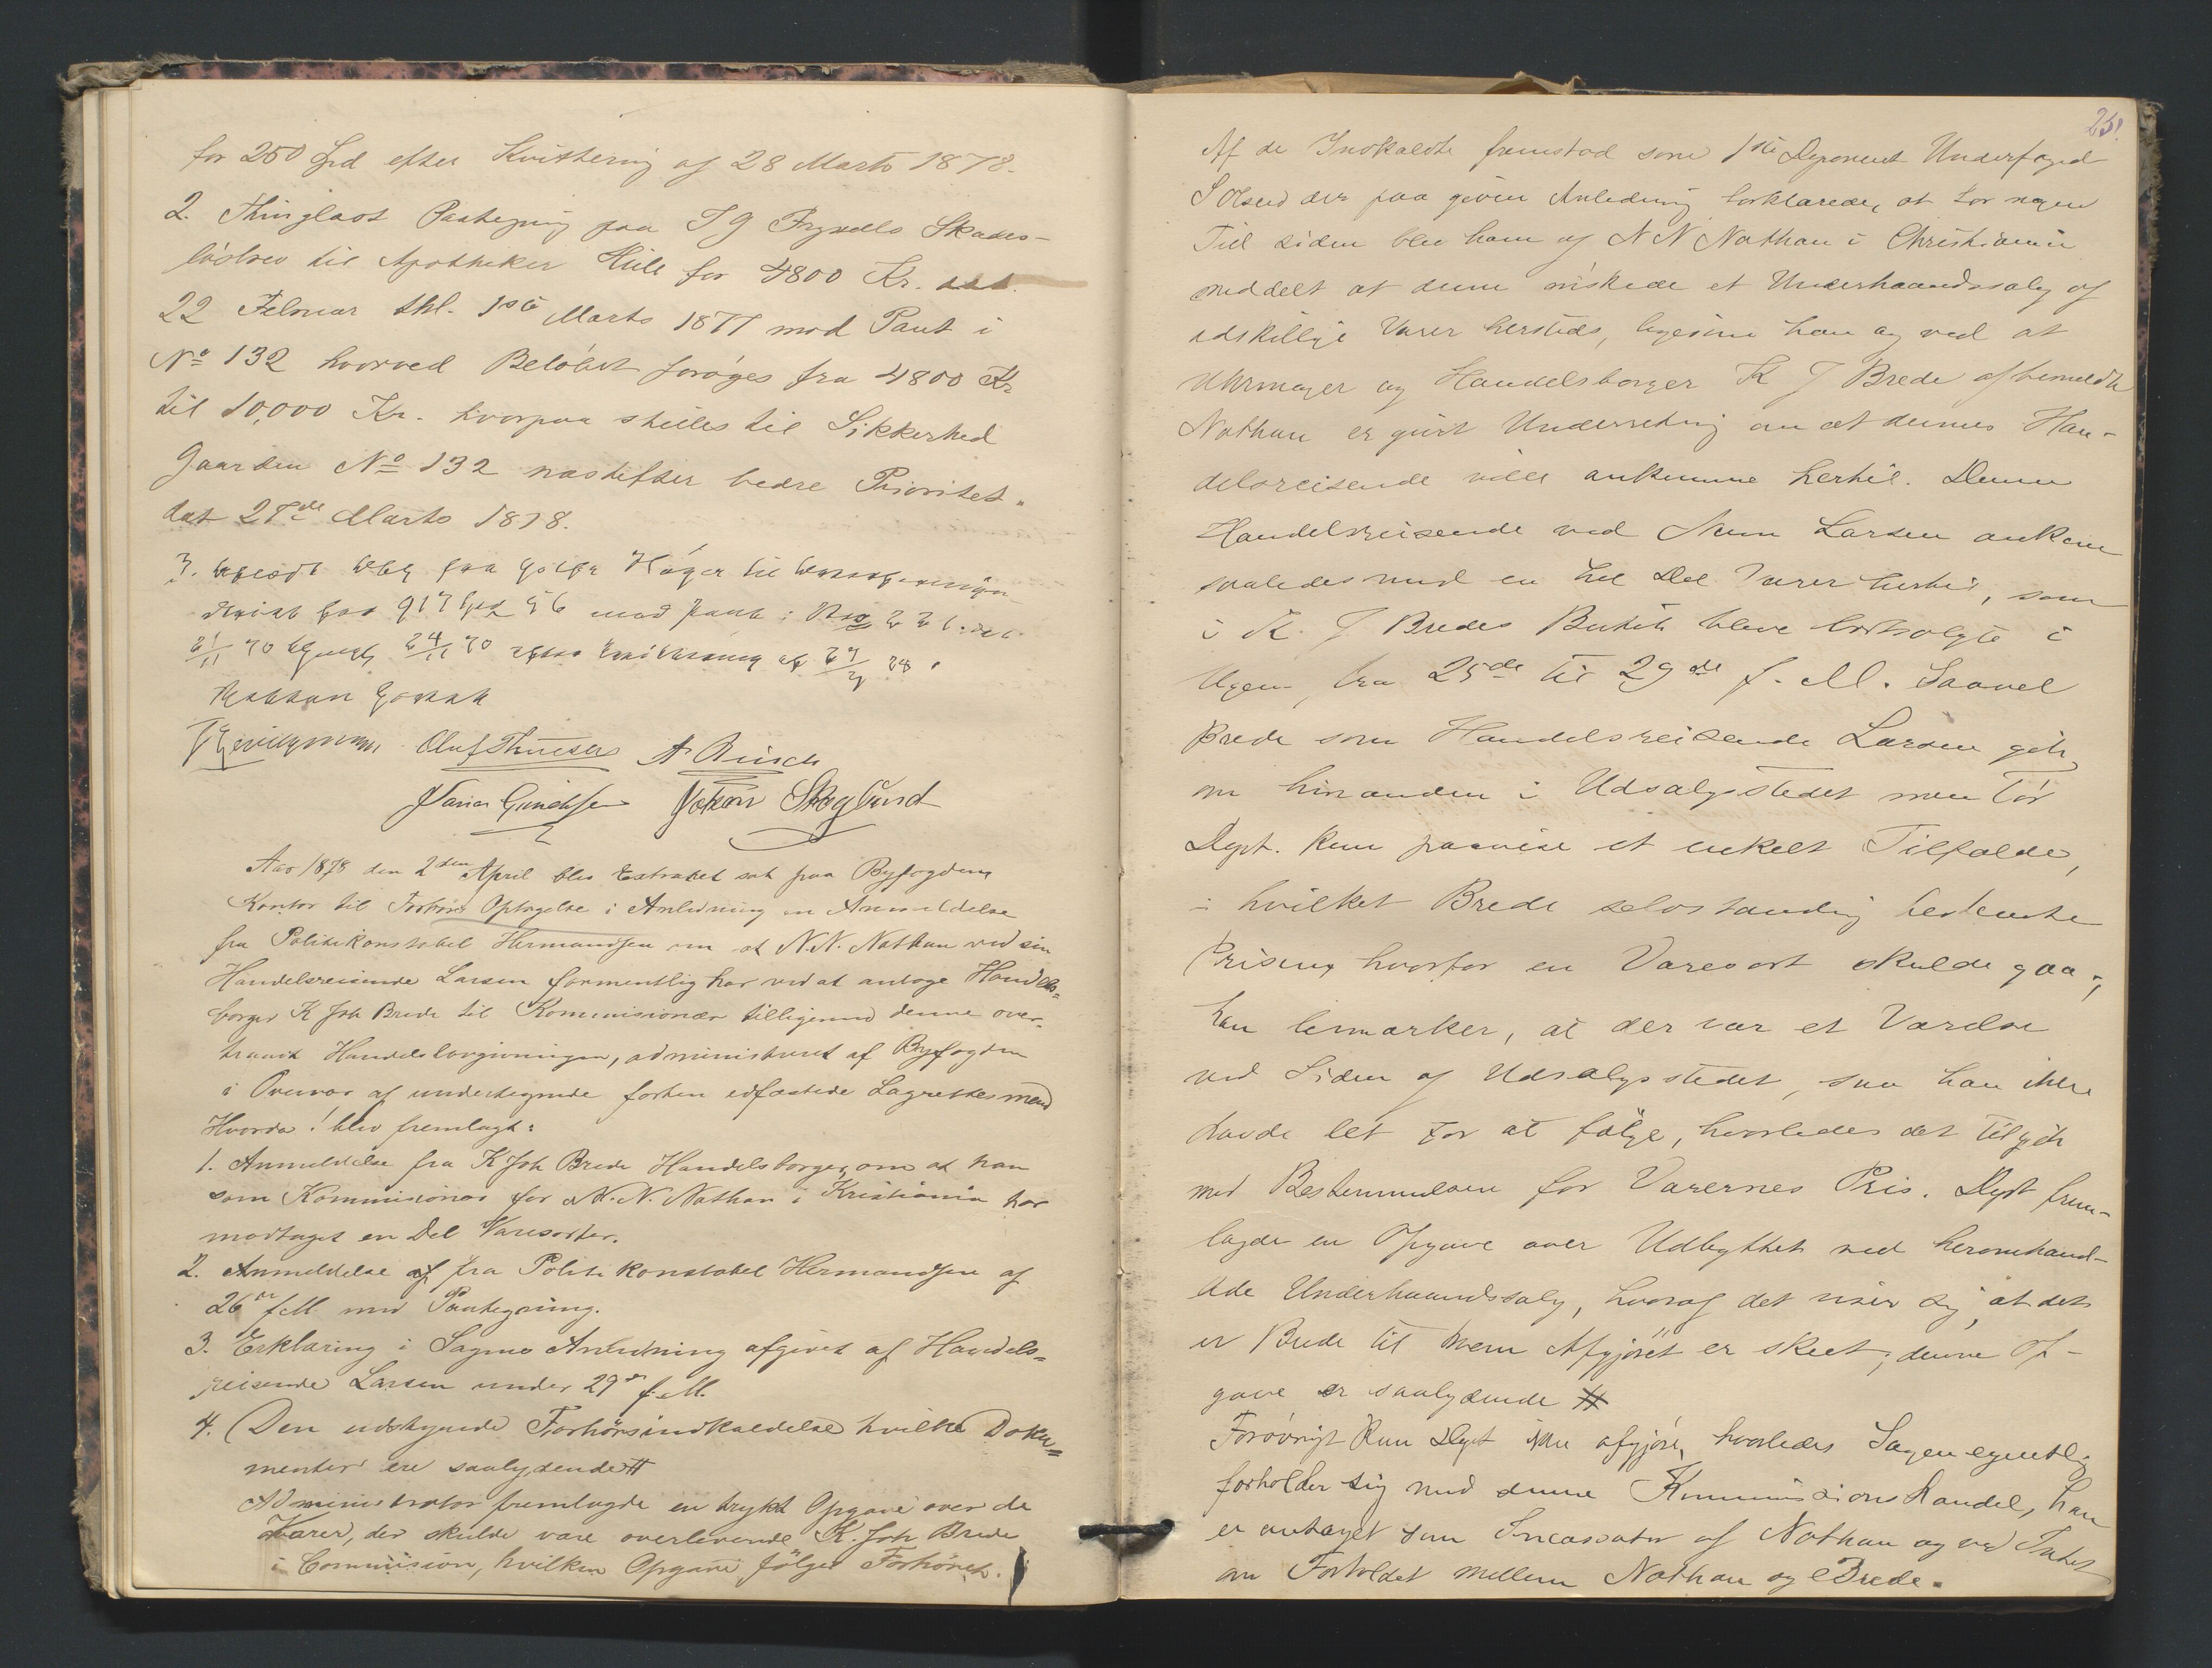 for 250 Spd efter Kvittering af 28 Marts 1878.
2. Thinglæst Paategning paa I G Frydells Skades-
løsbrev til Apotheker Hiile for 4800 Kr. dat.
22 Februar thl. 1ste Marts 1877 mod Pant i
No 132 hvorved Beløbet forøges fra 4800 Kr
til 10,000 Kr. hvorpaa stilles til Sikkerhed
Gaarden No 132 næstefter bedre Prioritet.
dat 27de Marts 1878.
3. Aflæst
917 Spd 56 mod Pant i
70 24/11 70 efter Kvittering af
Retten hævet
Oluf Thuesen A Busch
Johan Skoglund
Aar 1878 den 2den April blev Extraret sat paa Byfogdens
Kontor til Forhørs Optagelse i Anledning en Anmeldelse
fra Politikonstabel Hermandsen om at N.N. Nathan ved sin
Handelsreisende Larsen formentlig har ved at antage Handels-
borger K Joh Brede til Kommisionær tilligemed denne over-
traadt Handelslovgivningen, administreret af Byfogden
i Overvær af undertegnede forhen edfæstede Lagrettesmænd
Hvorda! blev fremlagt:
1. Anmeldelse fra K Joh Brede Handelsborger, om at han
som Kommisionær for N.N. Nathan i Kristiania har
modtaget en Del Varesorter.
2. Anmeldelse af fra Politikonstabel Hermandsen af
26de f.M. med Paategning.
3. Erklæring i Sagens Anledning afgivet af Handels-
reisende Larsen under 29de f.M.
4. Den udstedte Forhørsindkaldelse hvilke Doku-
menter ere saalydende #
Administrator fremlagde en trykt Opgave over de
Varer, der skulde være overleverede K. Joh Brede
i Commision, hvilken Opgave følger Forhøret.
25.
Af de Indkaldte fremstod som 1ste Deponent Underfoged
S Olsen der paa given Anledning forklarede, at for nogen
Tid siden blev ham af N N Nathan i Christiania
meddelt at denne ønskede et Underhaandssalg af
adskillige Varer hersteds, ligesom han og ved at
Uhrmager og Handelsborger K J Brede af bemeldte
Nathan er givet Underretning om at dennes Han-
delsreisende ville ankomme hertil. Denne
Handelsreisende ved Navn Larsen ankom
saaledes med en hel Del Varer hertil, som
i K. J Bredes Butik bleve bortsolgte i
Ugen fra 25de til 29de f. M. Saavel
Brede som Handelsreisende Larsen gik
om hinanden i Udsalgsstedet men tør
Dept. kun paavise et enkelt Tilfælde,
i hvilket Brede selvstændig bestemte
Prisen, hvorfor en Varesort skulde gaa;
han bemærker, at der var et Værelse
ved Siden af Udsalgsstedet, saa han ikke
havde let for at følge, hvorledes det tilgik
med Bestemmelsen for Varernes Pris. Dept frem-
lagde en Opgave over Udbyttet ved heromhand-
lede Underhaandssalg, hvoraf det viser sig, at det
er Brede til hvem Afgjøret er skeet; denne Op-
gave er saalydende #
Forøvrigt kan Dept ikke afgjøre, hvorledes Sagen egentlig
forholder sig med denne Kommissionshandel, han
er antaget som Incassator af Nathan og ved Intet
om Forholdet mellem Nathan og Brede.